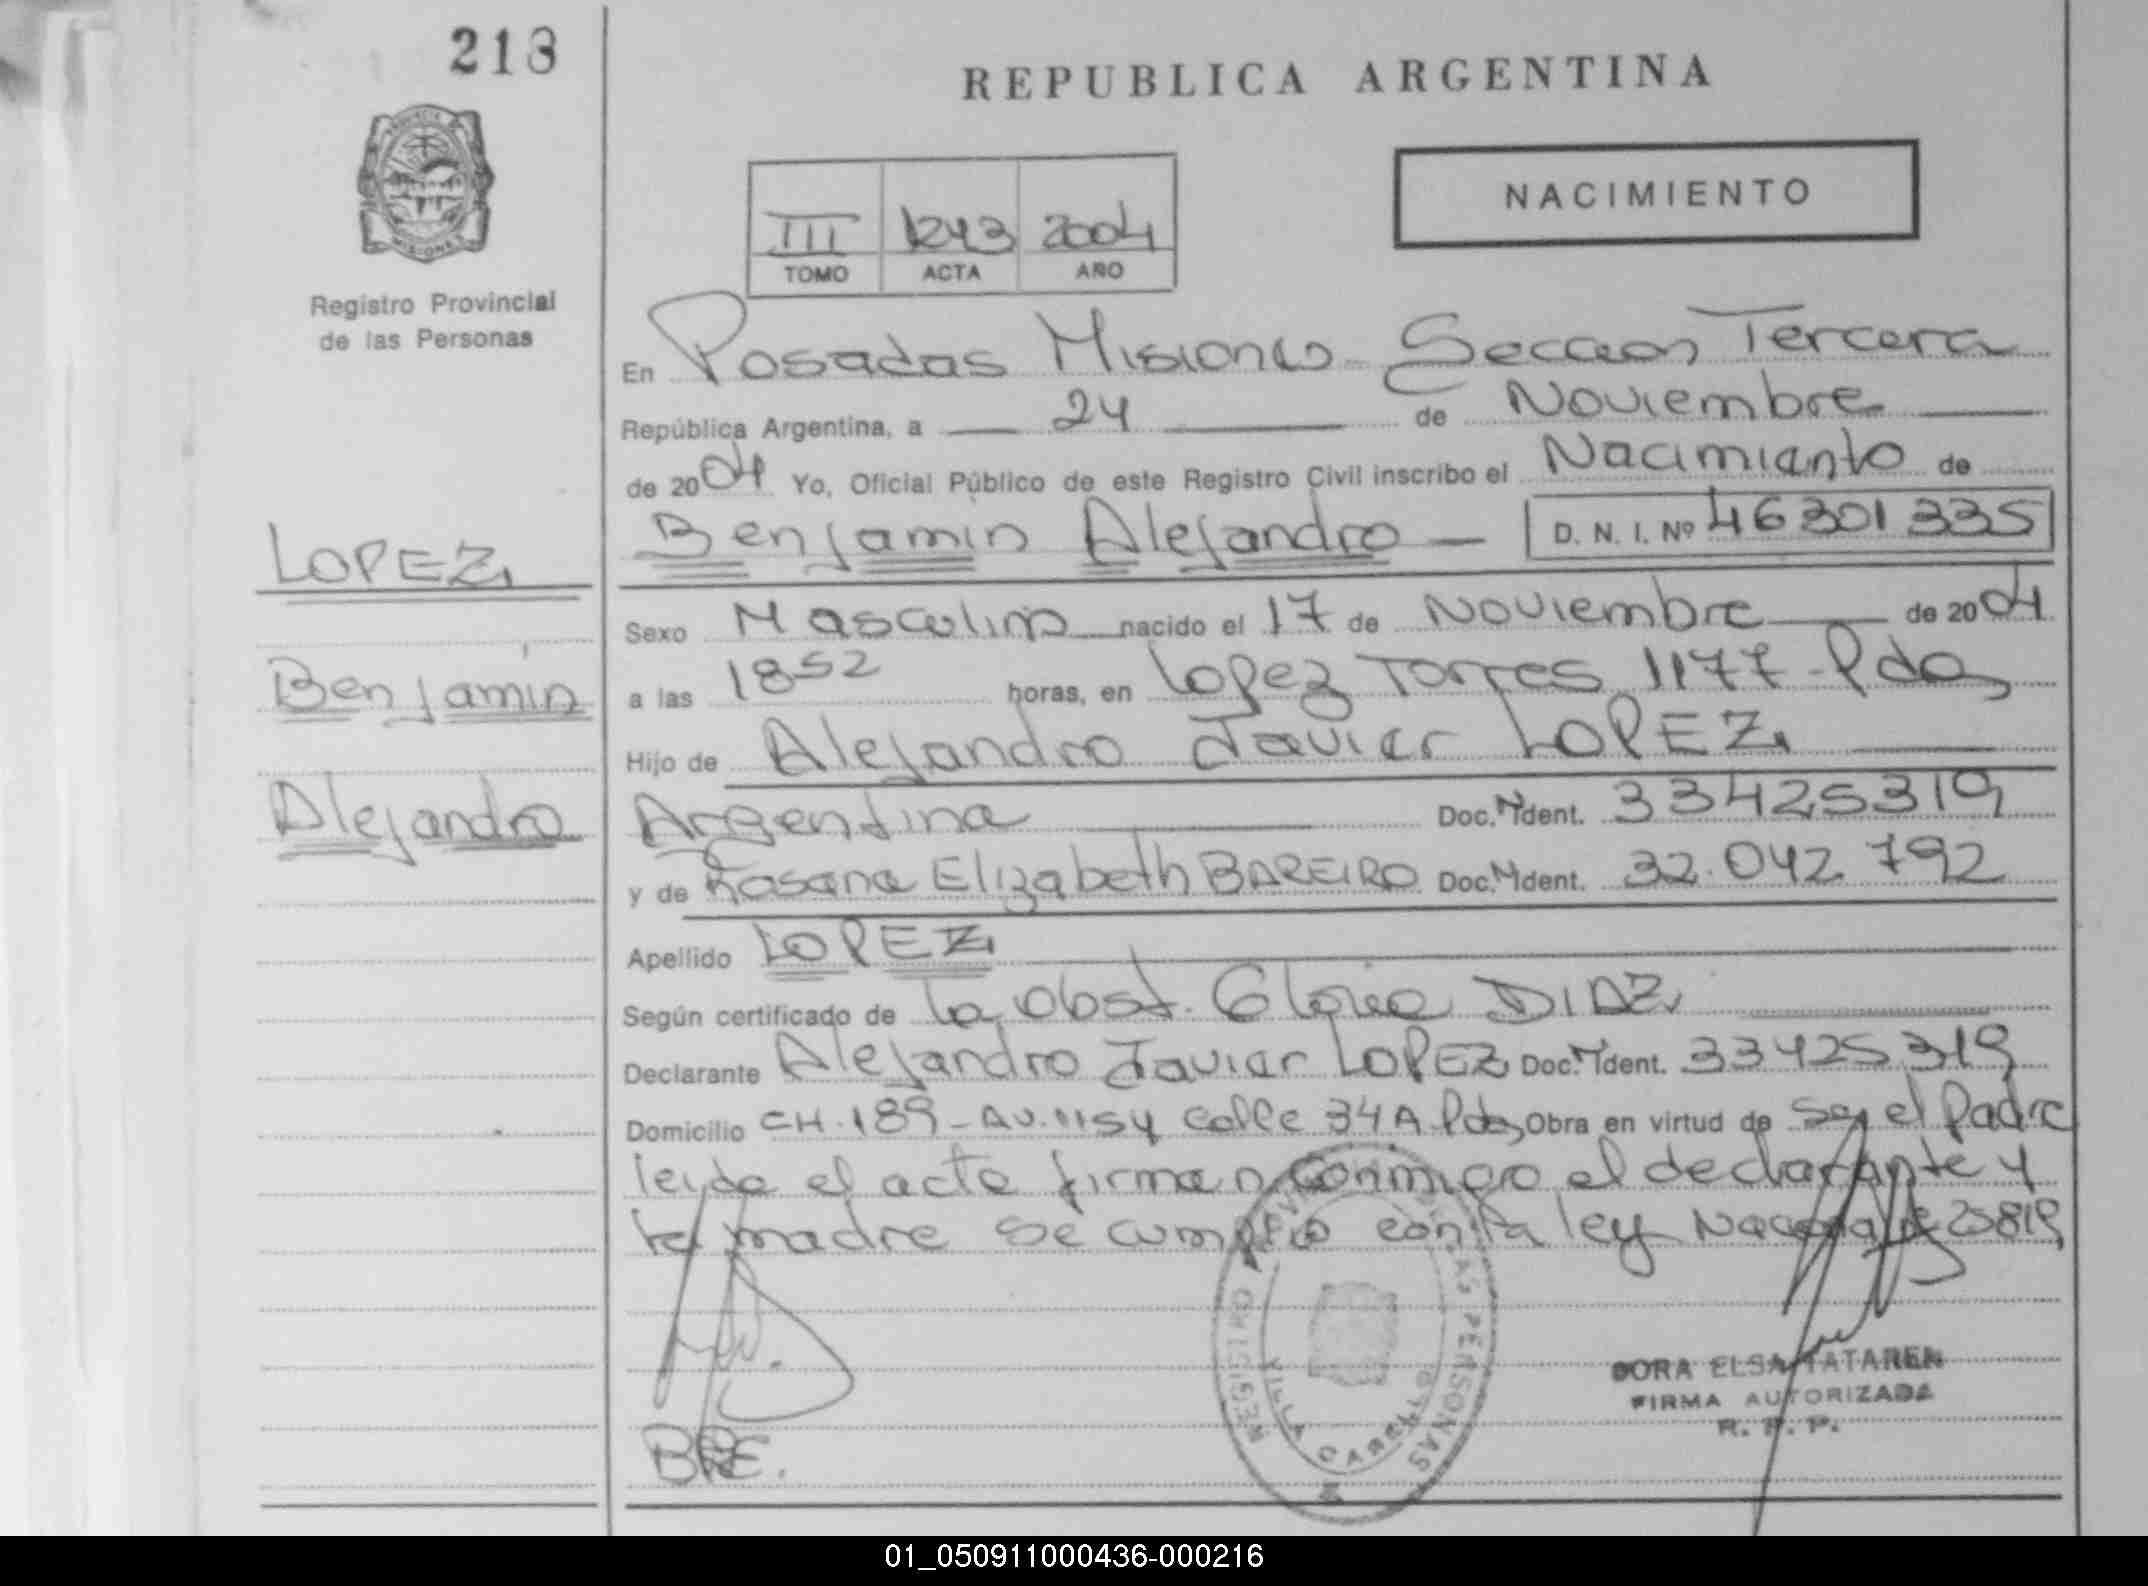 213
REPUBLICA ARGENTINA
NACIMIENTO
III 1243 2004
TOMO ACTA AÑO
Registro Provincial
de las Personas
En Posadas Misiones Seccion Tercera
República Argentina, a 24 de Noviembre
de 2004 Yo, Oficial Público de este Registro Civil inscribo el Nacimianto de
LOPEZ
Benjamin Alejandro D. N. I. Nº 46301335
Sexo Masculino nacido el 17 de Noviembre de 2004
Benjamin
a las 1852 horas, en Lopez Torres 1177 - Pdas
Hijo de Alejandro Javier LOPEZ
Alejandro
Argentina Doc. Ident. 33425319
y de Rosana Elizabeth BAREIRO Doc. Ident. 32.042.792
Apellido LOPEZ
Según certificado de la Obst. Gloria DIAZ
Declarante Alejandro Javier LOPEZ Doc. Ident. 33425319
Domicilio CH.189 - AV.115 y calle 34A Pdas Obra en virtud de Ser el Padre
leida el acta firman conmigo el declarante y
la madre se cumplio con la ley Nacional 25819
REGISTRO PROVINCIAL DE LAS PERSONAS
VILLA CABELLO
DORA ELSA TATAREN
FIRMA AUTORIZADA
R. P. P.
01_050911000436-000216